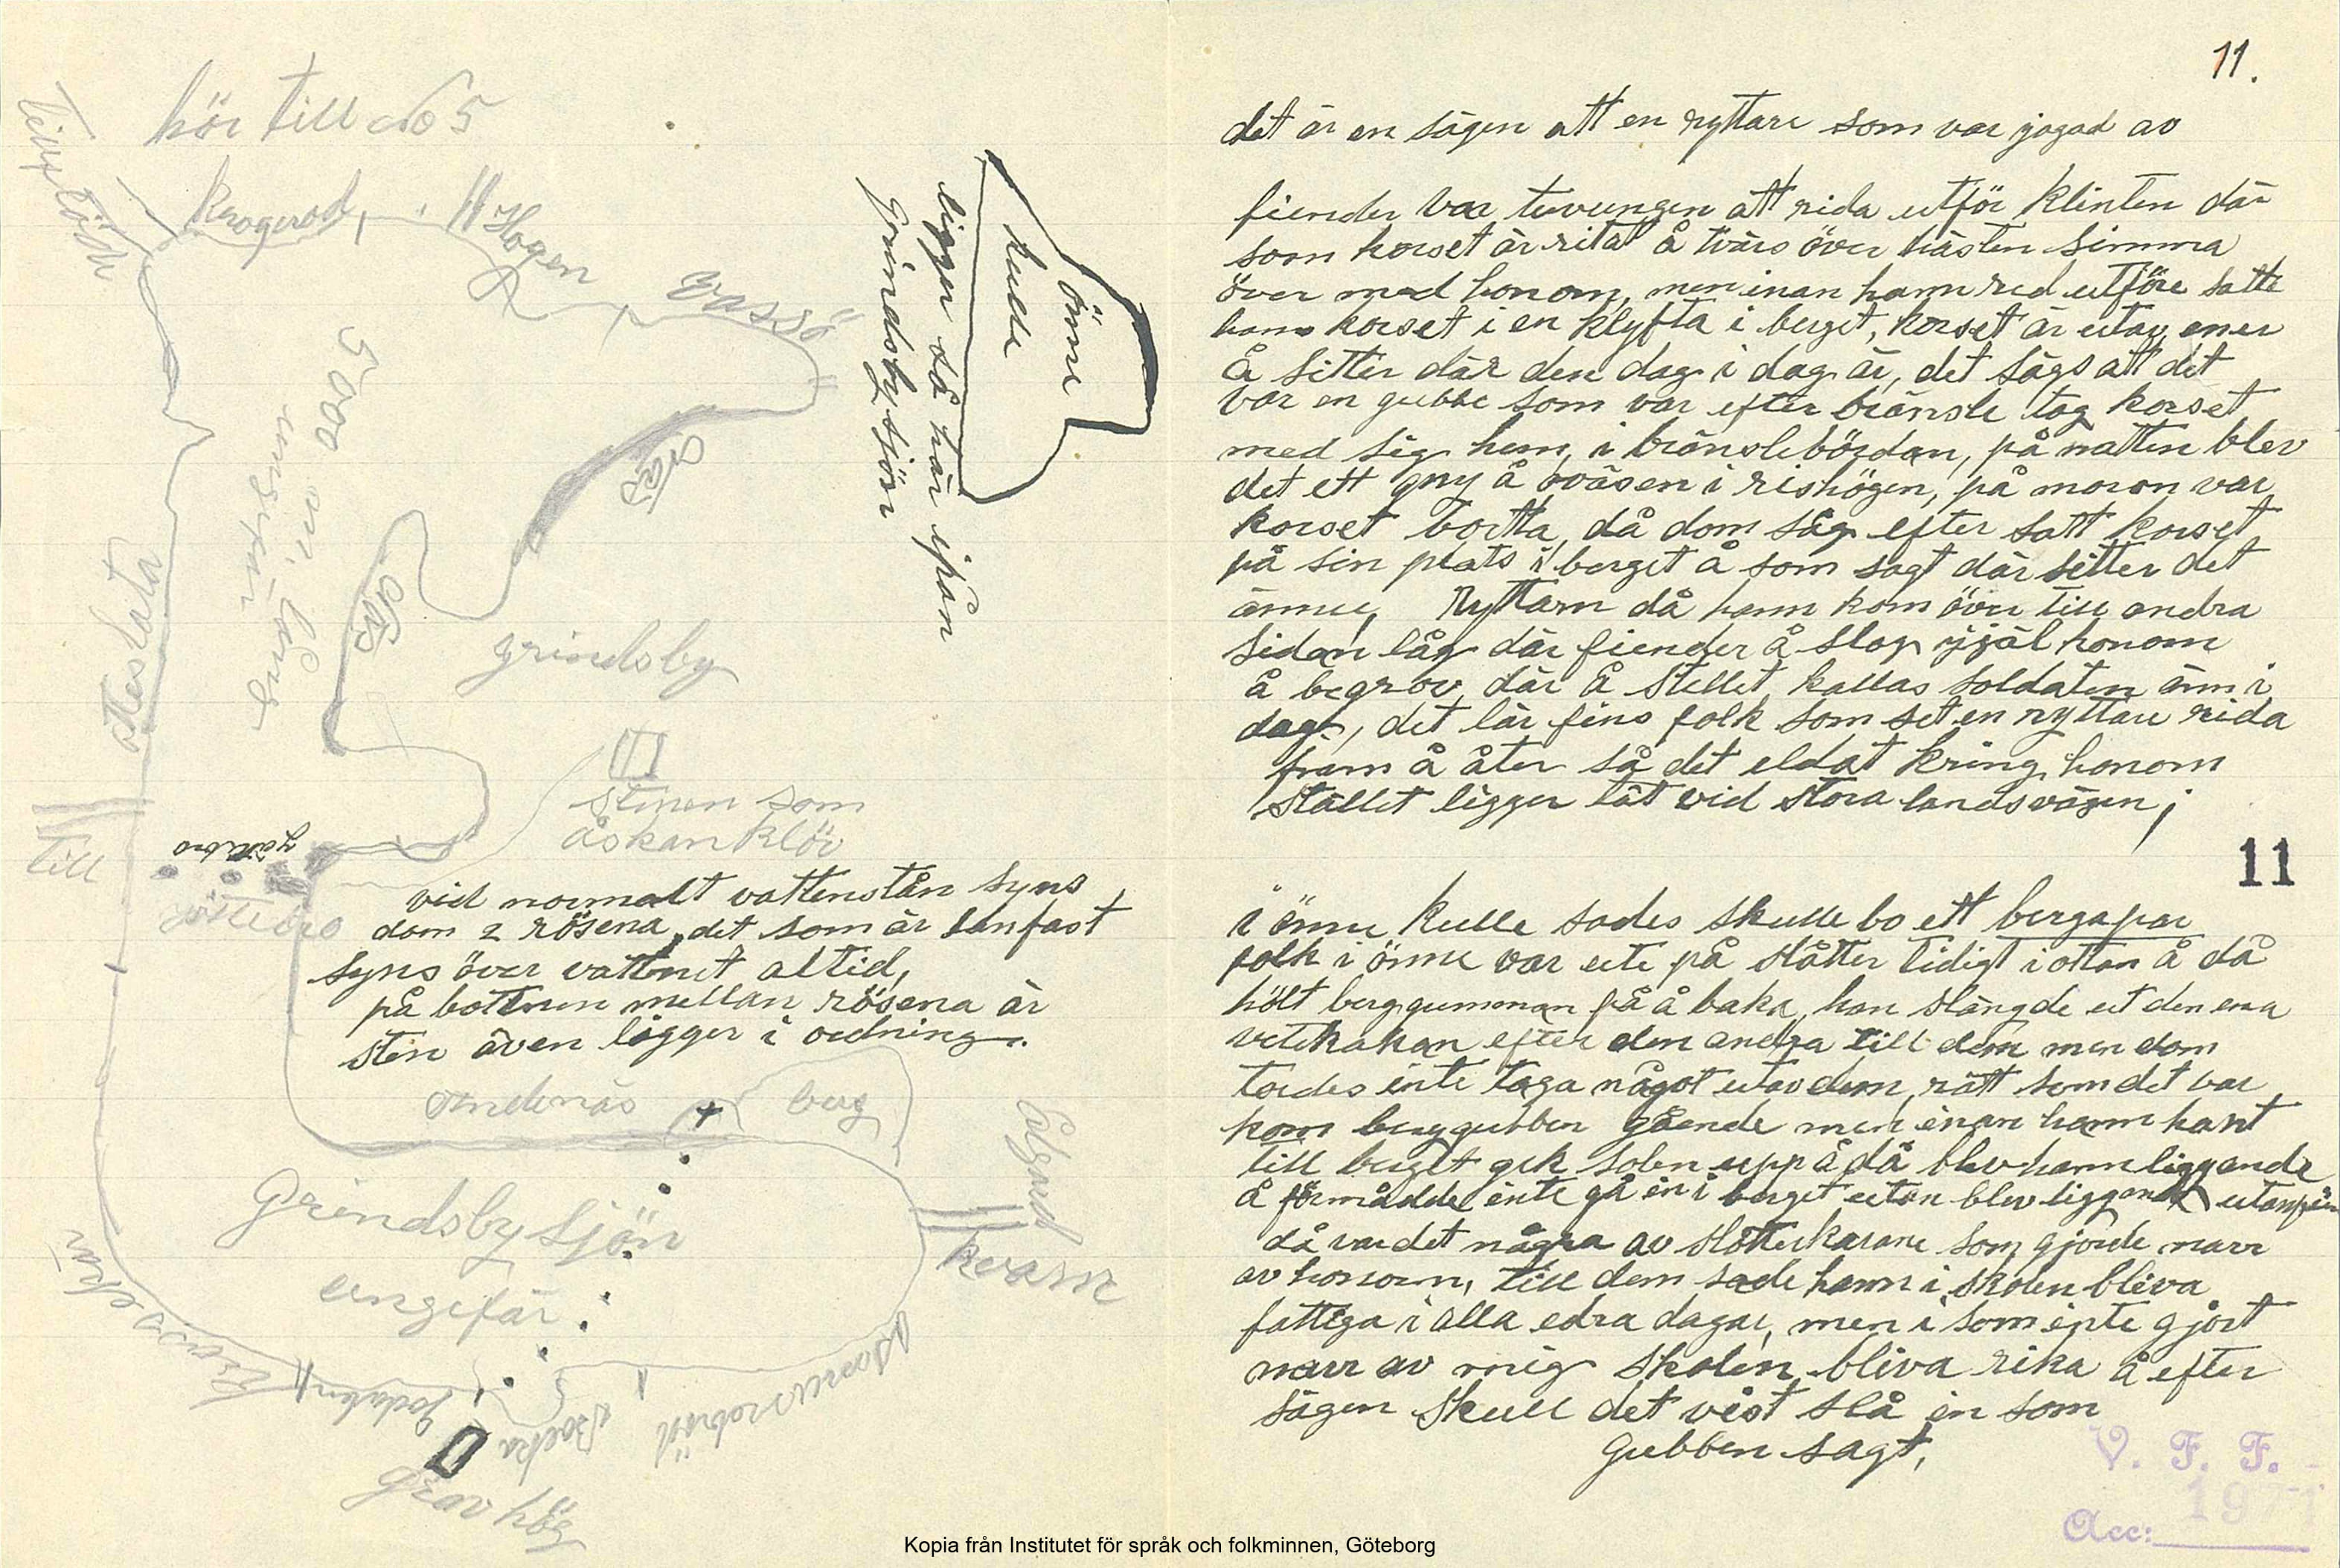 hör till No 5
krogerod
Hogen
Vassö
5000 m. lång
ungefär
Näs
Näs
grindsby
stenen som
åskan klöv
till
jättebro
jättebro
vid normalt vattenstån syns
dom 2 rösena, det som är lanfast
syns över vattnet altid,
på bottnen mellan rösena är
sten även ligger i ordning.
berg
Grindsby sjön
ungefär
kvarn
Backa
Grav hög
önne
kulle
ligger så här ifrån
Grindsbysjön
11.
det är en sägen att en ryttare som var jagad av
fiender var tuvungen att rida utför klinten där
som korset är ritat å tvärs över hästen simma
över med honom, men inan hann red utföre satte
hans korset i en klyfta i berget, korset är utav ener
Å sitter där den dag i dag är, det sägs att det
var en gubbe som var efter bränsle tog korset
med sig hem i bränslebördan, på natten blev
det ett gny å oväsen i rishögen, på moron var
korset bortta då dom såg efter satt korset
på sin plats i berget å som sagt där sitter det
ännu, Ryttarn då hann kom över till andra
sidan låg där fiender å slog ijäl honom
å begrov där å stellet kallas soldaten änn i
dag, det lär fins folk som set en ryttare rida
fram å åter så det eldat kring honom
stället ligger tät vid stora landsvägen;
11
i önne kulle sades skulle bo ett bergapar
folk i önne var ute på slåtter tidigt i ottan å då
hölt berggumman på å baka, hon slängde ut den ena
vetekakan efter den andra till dem men dom
tordes inte taga något utav dem, rätt som det var
kom berggubben gående men inan hann hant
till berget gek solen upp å då blev hann liggande
å förmådde inte gå in i berget utan blev liggande utanför
då var det några av slåtterkarane som gjorde narr
av honom, till dem sade hann i skolen bliva
fattiga i alla edra dagar, men i som inte gjort
narr av mig skolen bliva rika å efter
sägen skull det vist slå in som
gubben sagt,
V. F. F.
Acc:
Kopia från Institutet för språk och folkminnen, Göteborg